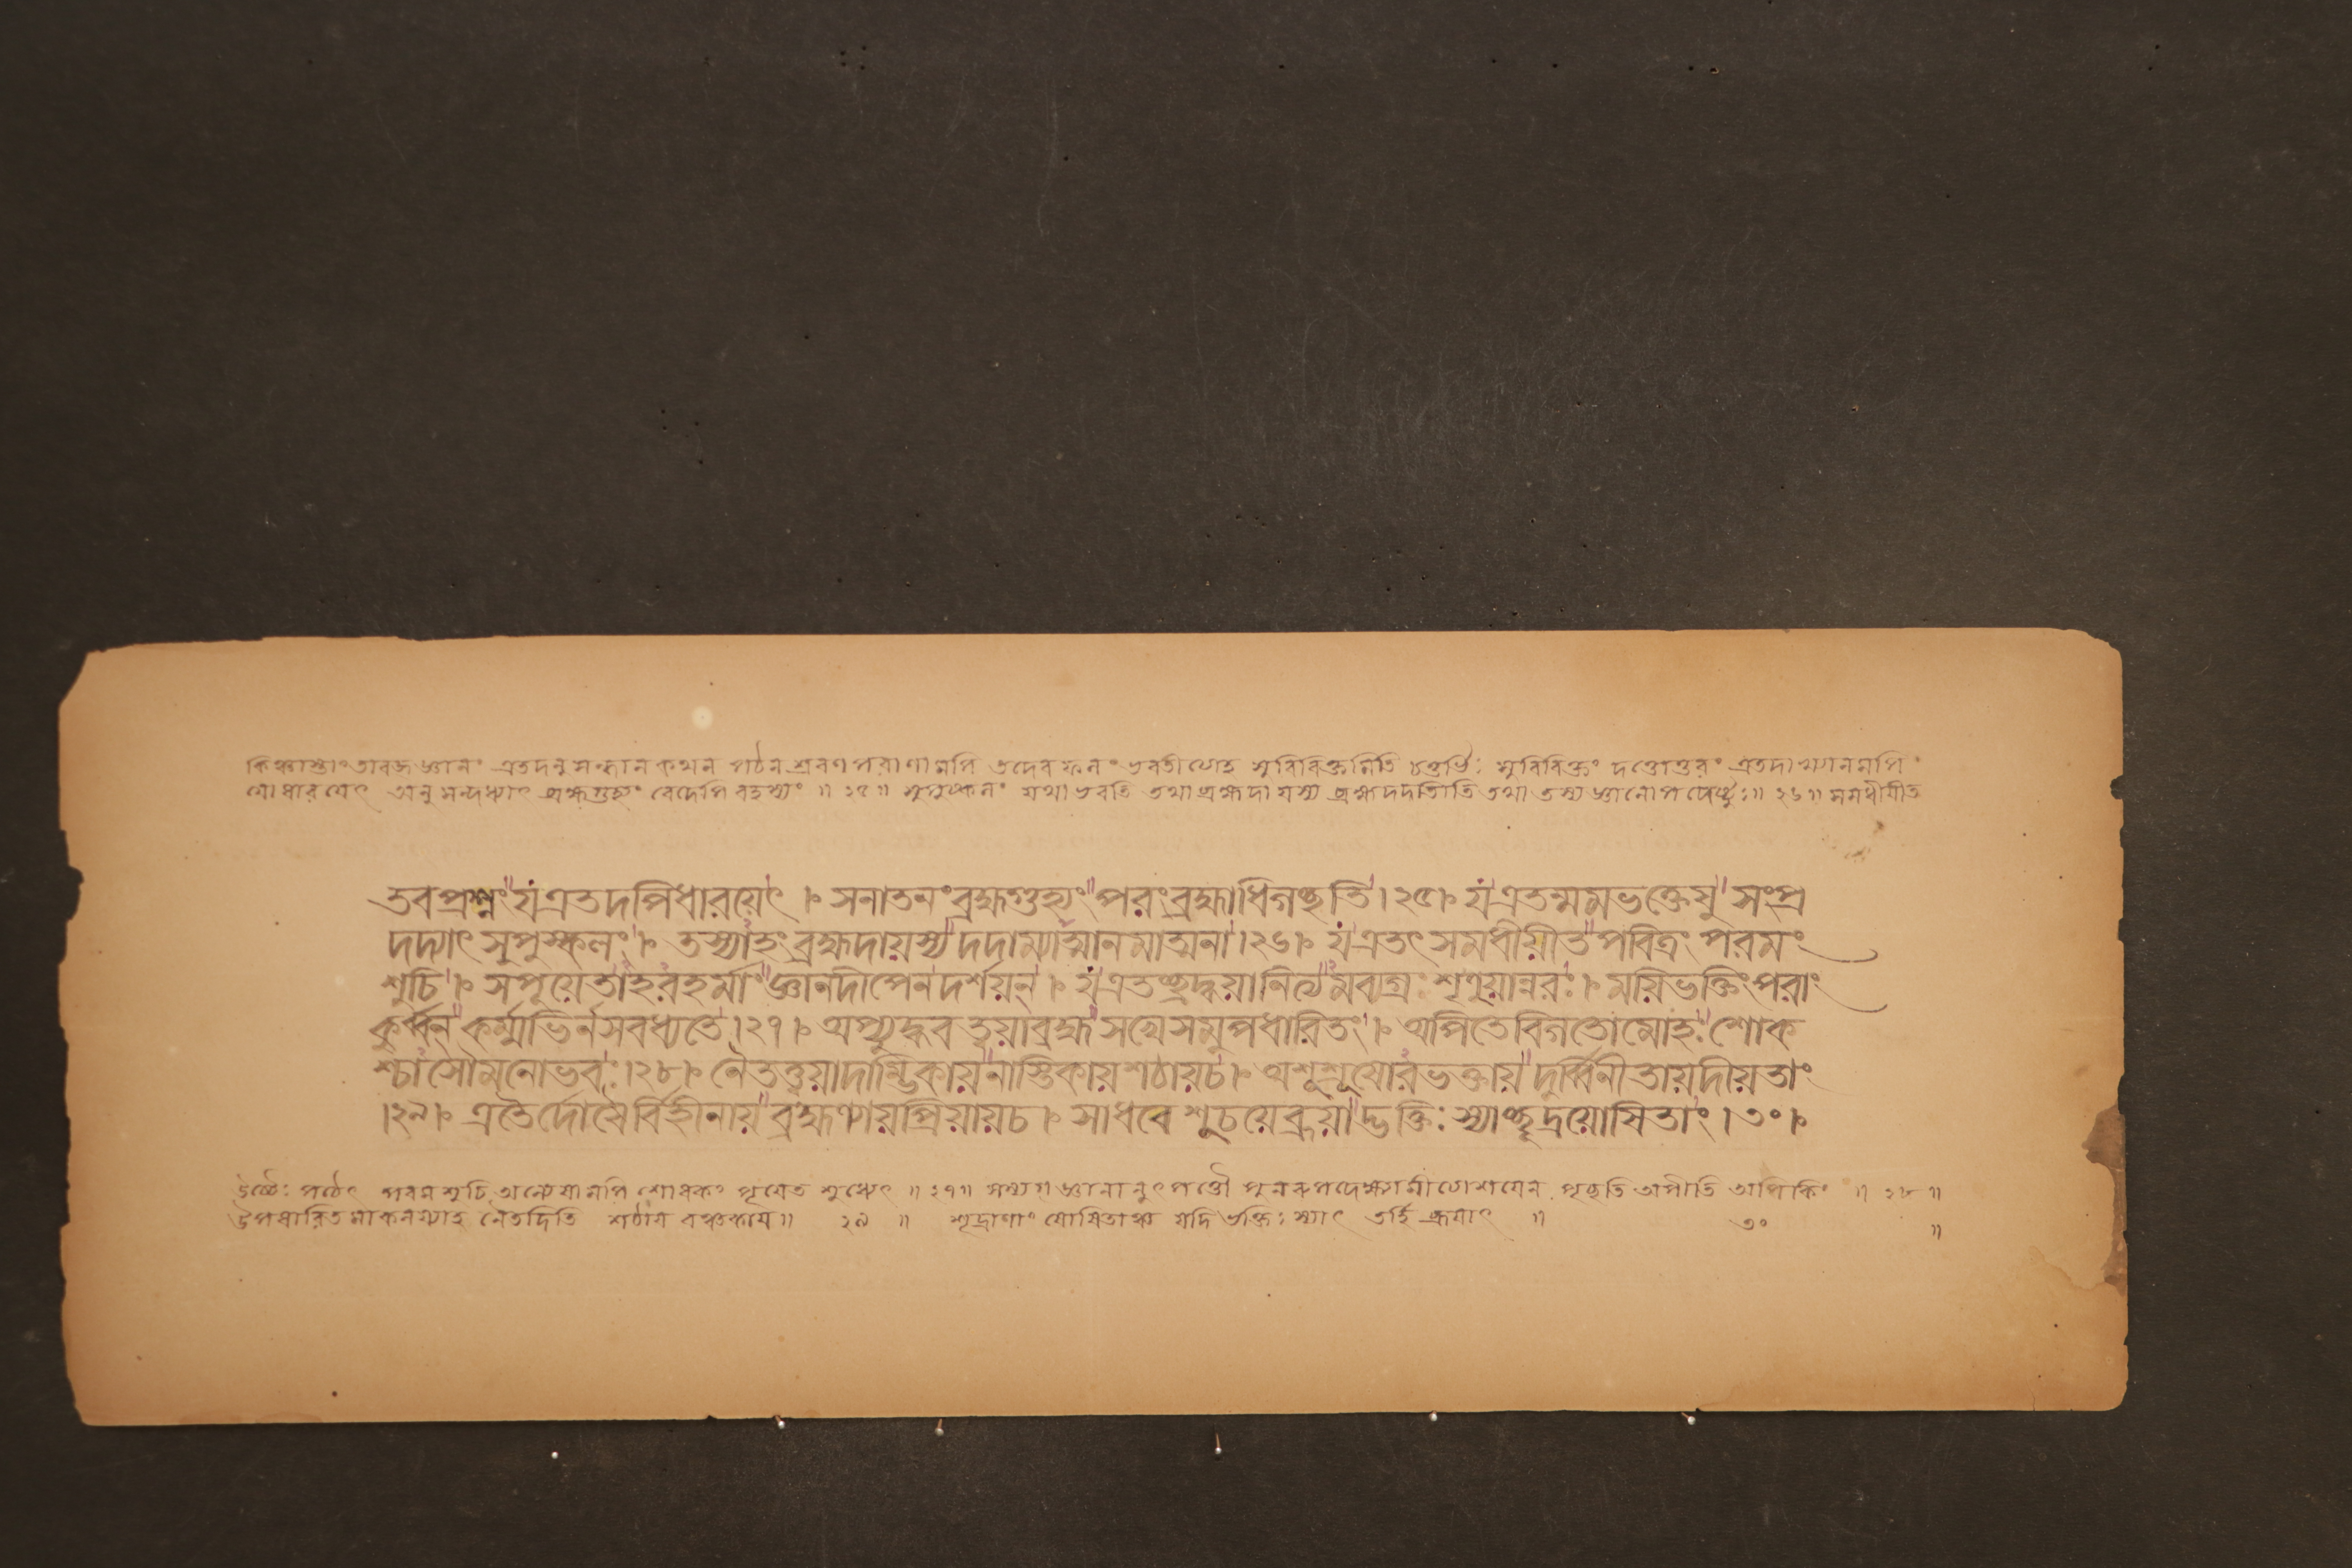 কিঞ্চাস্তাং তাবজ্জ্ঞানং এতদনুসন্ধানকথন পঠনশ্রবণপরাণামপি তদেব ফলং ভবতীত্যাহ সুবিবিক্তমিতি চতুর্ভিঃ সুবিবিক্তং দত্তোত্তরং এতদাখ্যানমপি
যো ধারয়েৎ অনুসন্দধ্যাৎ ব্রহ্মগুহ্যং বেদেপি রহস্যং ॥ ২৫ ॥ সুপুষ্কলং যথা ভবতি তথা ব্রহ্মদায়স্য ব্রহ্ম দদাতীতি তথা তস্য জ্ঞানোপদেষ্টুঃ ॥ ২৬ ॥ সমধীয়ীত
তবপ্রশ্নং যএতদপিধারয়েৎ । সনাতনংব্রহ্মগুহ্যং পরংব্রহ্মাধিগচ্ছতি । ২৫ । যএতন্মমভক্তেষু সংপ্র
দদ্যাৎ সুপুস্কলং । তস্যাহংব্রহ্মদায়স্য দদাম্যাত্মানমাত্মনা । ২৬ । যএতৎ সমধীয়ীত পবিত্রং পরমং
শুচি । সপুয়েতাহরহর্মাং জ্ঞানদীপেনদর্শয়ন্ । যএতচ্ছ্রদ্ধয়ানিত্যমব্যগ্রঃ শৃণুয়ান্নরঃ । ময়িভক্তিংপরাং
কুর্ব্বন্ কর্ম্মাভির্নসবধ্যতে । ২৭ । অপ্যুদ্ধব ত্বয়াব্রহ্ম সখেসমুপধারিতং । অপিতেবিগতোমোহঃ শোক
শ্চাসৌমনোভবঃ । ২৮ । নৈতত্ত্বয়াদাম্ভিকায় নাস্তিকায়শঠায়চ । অশুশ্রূষোরভক্তায় দুর্ব্বিনীতায়দীয়তাং
। ২৯ । এতৈর্দোষৈর্বিহীনায় ব্রহ্মণ্যায়প্রিয়ায়চ । সাধবে শুচয়েব্রূয়াদ্ভক্তিঃ স্যাচ্ছূদ্রয়োষিতাং । ৩০ ।
উচ্চৈঃ পঠেৎ পরমশুচি অন্যেষামপি শোধকং পূয়েত শুধ্যেৎ ॥ ২৭ ॥ সম্যগ্জ্ঞানানুৎপত্তৌ পুনরুপদেক্ষ্যামীত্যাশয়েন পৃচ্ছতি অপীতি অপি কিং ॥ ২৮ ॥
উপধারিত নৈতদিতি শঠায় বঞ্চকায় ॥ ২৯ ॥ শূদ্রাণাং যোষিতাঞ্চ যদি ভক্তিঃ স্যাৎ তর্হি ব্রূয়াৎ ॥ ৩০ ॥